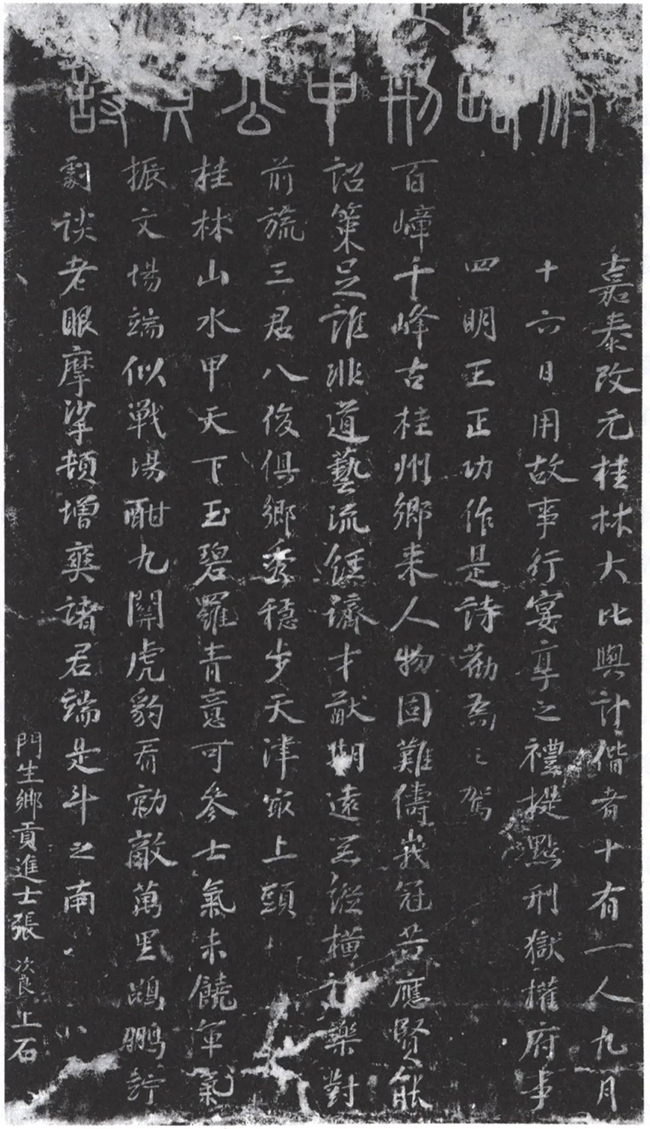 略刑中公詩
嘉泰改元桂林大比與計偕者十有一人九月
十六日用故事行宴享之禮提點刑獄權府事
四明王正功作是詩勸爲之駕
百嶂千峰古桂州鄉来人物固難儔峩冠應賢能
詔策足誰非道藝流經濟才猷期遠器縱橫禮樂對
前旒三君八俊俱鄉秀穩步天津㝡上頭
桂林山水甲天下玉碧羅青意可參士氣未饒軍氣
振文場端似戰場酣九關虎豹看勍敵萬里鵾鵬佇
劇談老眼摩挲頓增爽諸君端是斗之南
門生鄉貢進士張次良上石